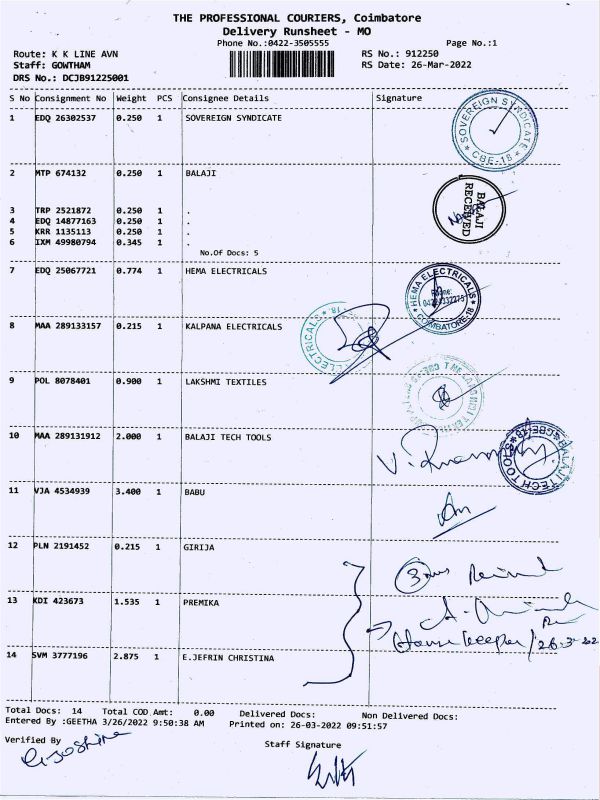 THE PROFESSIONAL COURIERS, Coimbatore
Delivery Runsheet - MO
Phone No.:0422-3505555
Page No.:1
Route: K K LINE AVN
RS No.: 912250
Staff: GOWTHAM
RS Date: 26-Mar-2022
DRS No.: DCJB91225001
S No Consignment No Weight PCS Consignee Details Signature
1 EDQ 26302537 0.250 1 SOVEREIGN SYNDICATE
SOVEREIGN SYNDICATE
CBE-18
2 MTP 674132 0.250 1 BALAJI
BALAJI
RECEIVED
3 TRP 2521872 0.250 1 .
4 EDQ 14877163 0.250 1 .
5 KRR 1135113 0.250 1 .
6 IXM 49980794 0.345 1 .
No.Of Docs: 5
7 EDQ 25067721 0.774 1 HEMA ELECTRICALS
HEMA ELECTRICALS
Phone:
COIMBATORE-18
8 MAA 289133157 0.215 1 KALPANA ELECTRICALS
ELECTRICALS
18
9 POL 8078401 0.900 1 LAKSHMI TEXTILES
10 MAA 289131912 2.000 1 BALAJI TECH TOOLS
BALAJI TECH TOOLS
CBE-18
11 VJA 4534939 3.400 1 BABU
12 PLN 2191452 0.215 1 GIRIJA
13 KDI 423673 1.535 1 PREMIKA
House keeper/26-3-22
14 SVM 3777196 2.875 1 E.JEFRIN CHRISTINA
Total Docs: 14 Total COD Amt: 0.00 Delivered Docs: Non Delivered Docs:
Entered By :GEETHA 3/26/2022 9:50:38 AM Printed on: 26-03-2022 09:51:57
Verified By
Staff Signature